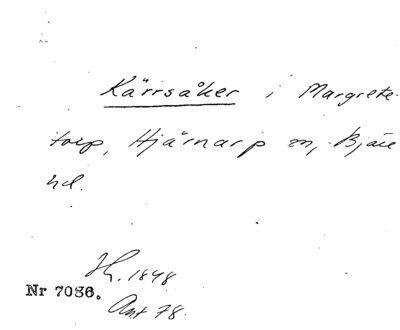 Kärrsåker i Margrete-
torp, Hjärnarp sn, Bjäre
hd.
Jh. 1848
Nr 7086.
Ant 78.